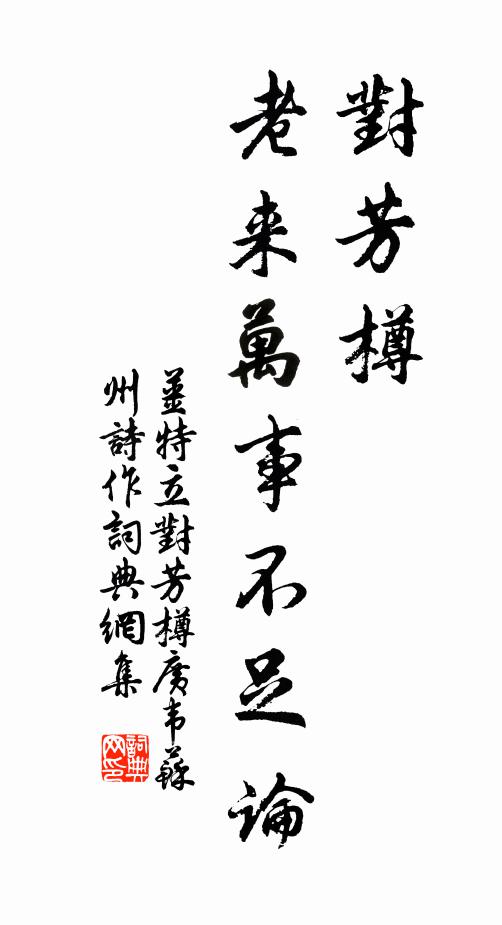 對芳樽
老来萬事不足論
姜特立對芳樽廣韦蘇
州詩作詞典網集
詞典
网印